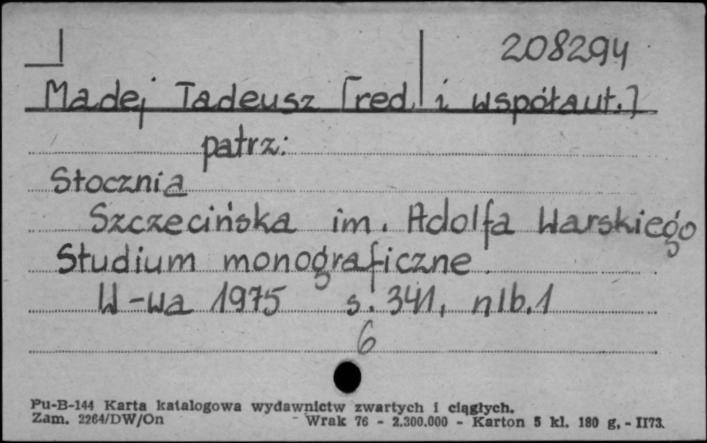 208294
Madej Tadeusz [red. i współaut.]
patrz:
Stocznia
Szczecińska im. Adolfa Warskiego
Studium monograficzne.
W-wa 1975 s. 341, nlb.1
6
Pu-B-144 Karta katalogowa wydawnictw zwartych i ciągłych.
Zam. 2264/DW/On Wrak 76 - 2.300.000 - Karton 5 kl. 180 g. - II73.